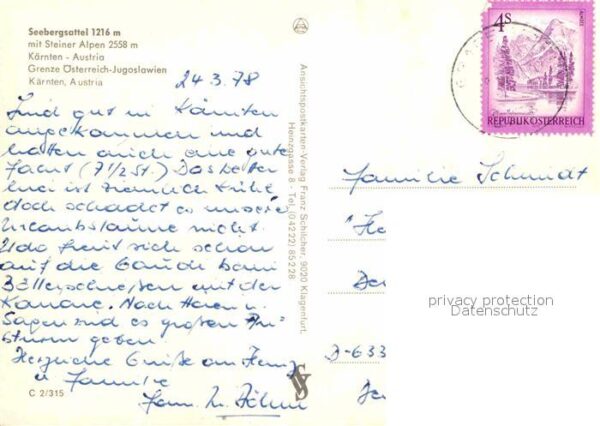 Seebergsattel 1216 m
mit Steiner Alpen 2558 m
Kärnten - Austria
Grenze Österreich-Jugoslawien
Kärnten, Austria
24.3.78
Sind gut in Kärnten
angekommen und
hatten auch eine gute
Fahrt (7 1/2 St.) Das Wetter
hier ist ziemlich kühl
doch schadet es unserer
Urlaubslaune nicht.
Udo freut sich schon
auf die Gaude beim
Böllerschießen mit der
Kanone. Nach Hören u.
Sagen wird es großen An-
sturm geben
Herzliche Grüße an
u Familie
Fam. Böhm
C 2/315
Ansichtspostkarten-Verlag Franz Schilcher, 9020 Klagenfurt.
Henzgasse 8 - Tel. (04222) 85228
4S
REPUBLIK ÖSTERREICH
Familie Schmidt
D-633
privacy protection
Datenschutz